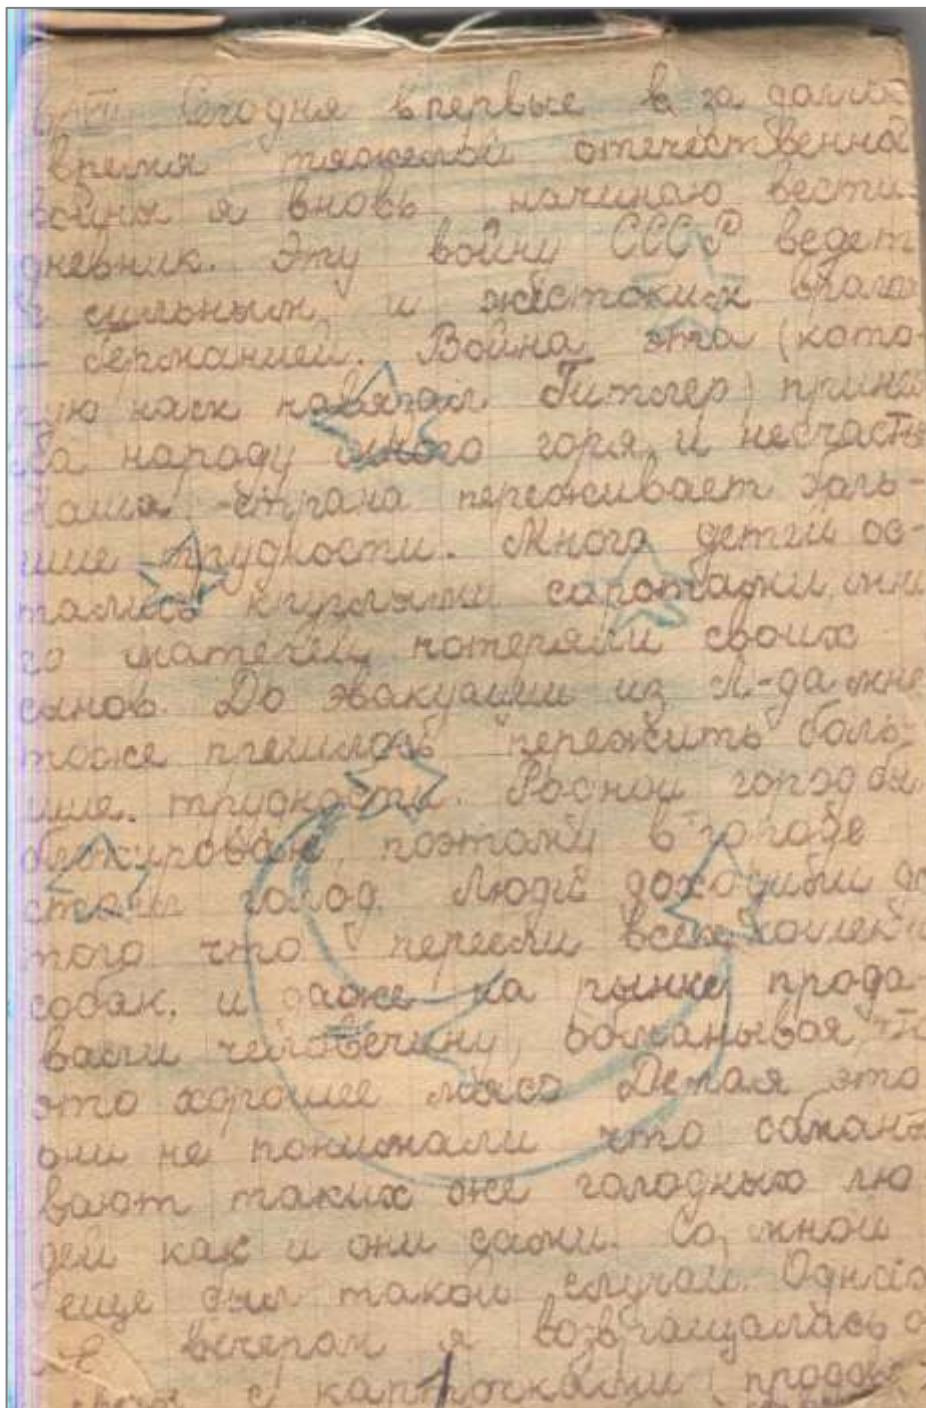 Сегодня впервые в за долгое
время тяжелой отечественной
войны я вновь начинаю вести
дневник. Эту войну СССР ведет
с сильным и жестоким врагом
– Германией. Война эта (кото-
рую нам навязал Гитлер) принес
ла народу много горя и несчастья
наша страна переживает боль-
шие трудности. Много детей ос-
тались круглыми саротами, мно
го матерей потеряли своих
сынов. До эвакуации из Л-да мне
тоже пришлось пережить боль-
шие трудности. Родной город был
блокирован, поэтому в городе
стал голод. Люди доходили до
того что переели всех кошек и
собак. и даже на рынке прода-
вали человечину, обманывая, что
это хорошее мясо Делая это
они не понимали что обманы
вают таких же голодных лю
дей как и они сами. Со мной
еще был такой случай. Однаж
вечером я возвращалась
с карточками (